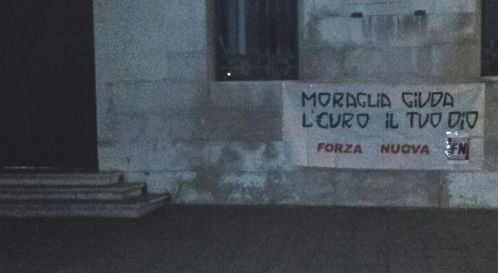 MORAGLIA GIUDA
L'EURO IL TUO DIO
FORZA NUOVA FN